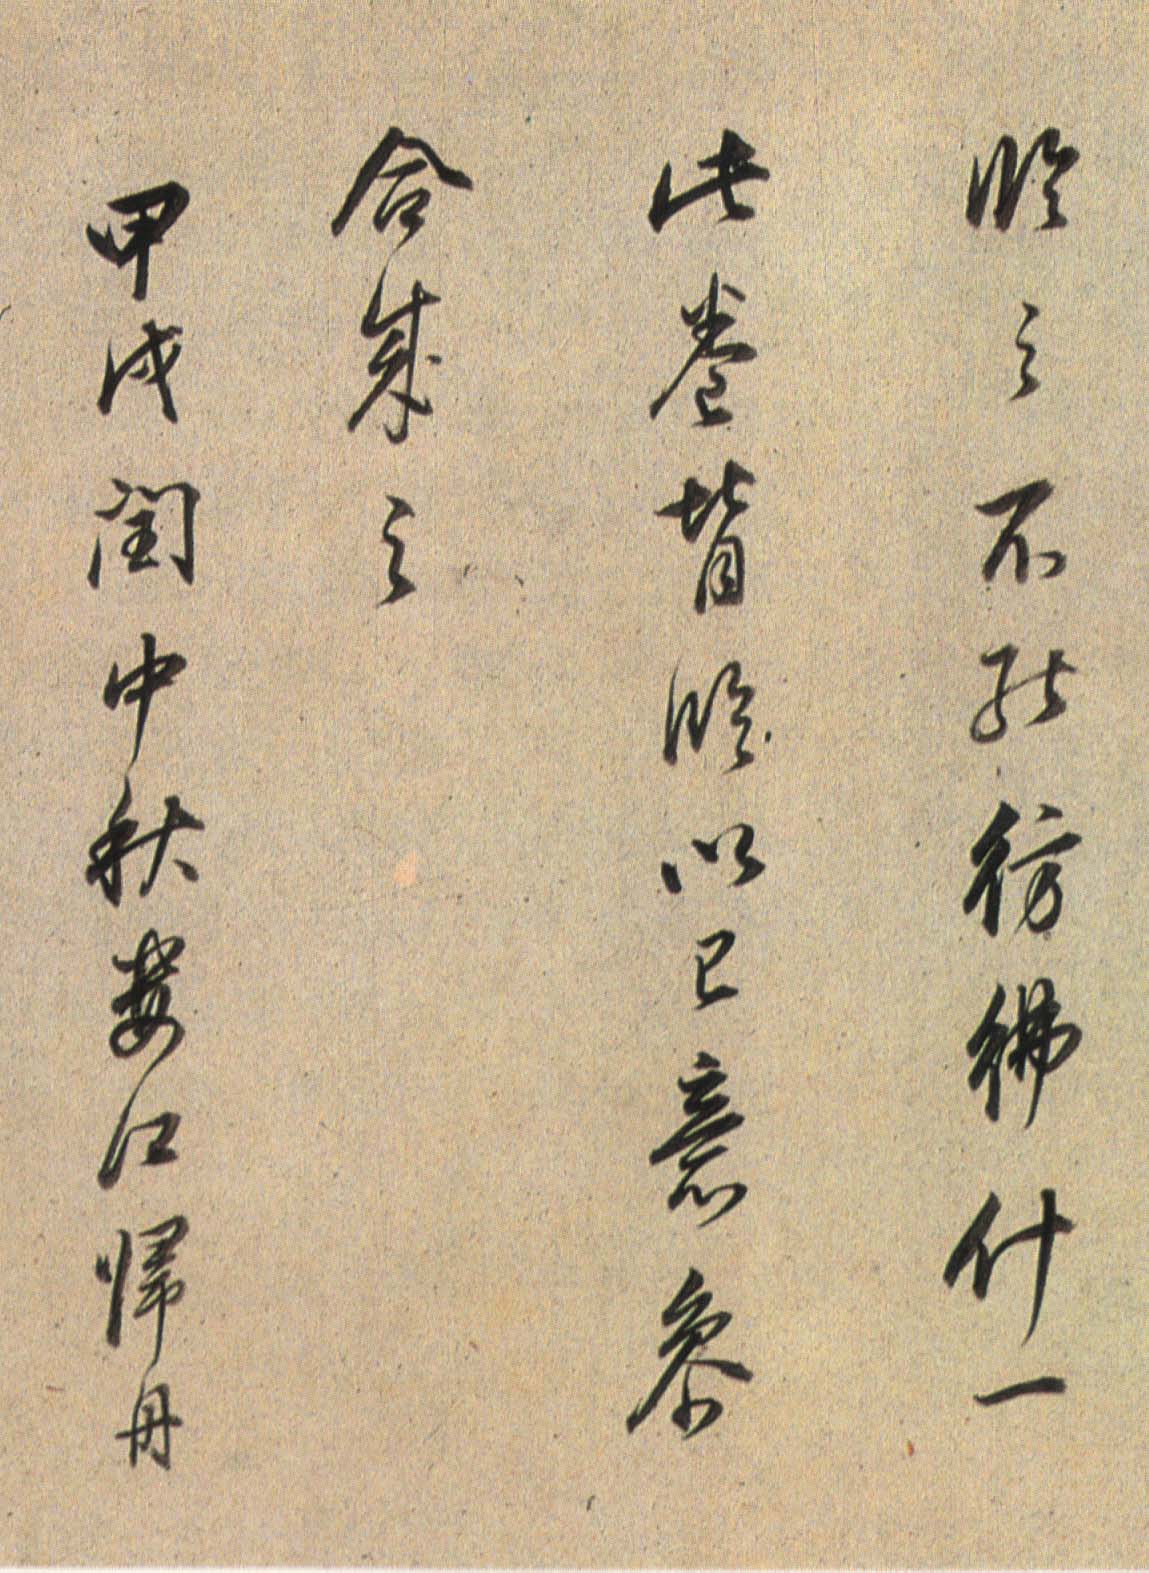 臨之不能彷彿什一
此卷皆臨以己意參
合成之
甲戌閏中秋婁江歸舟